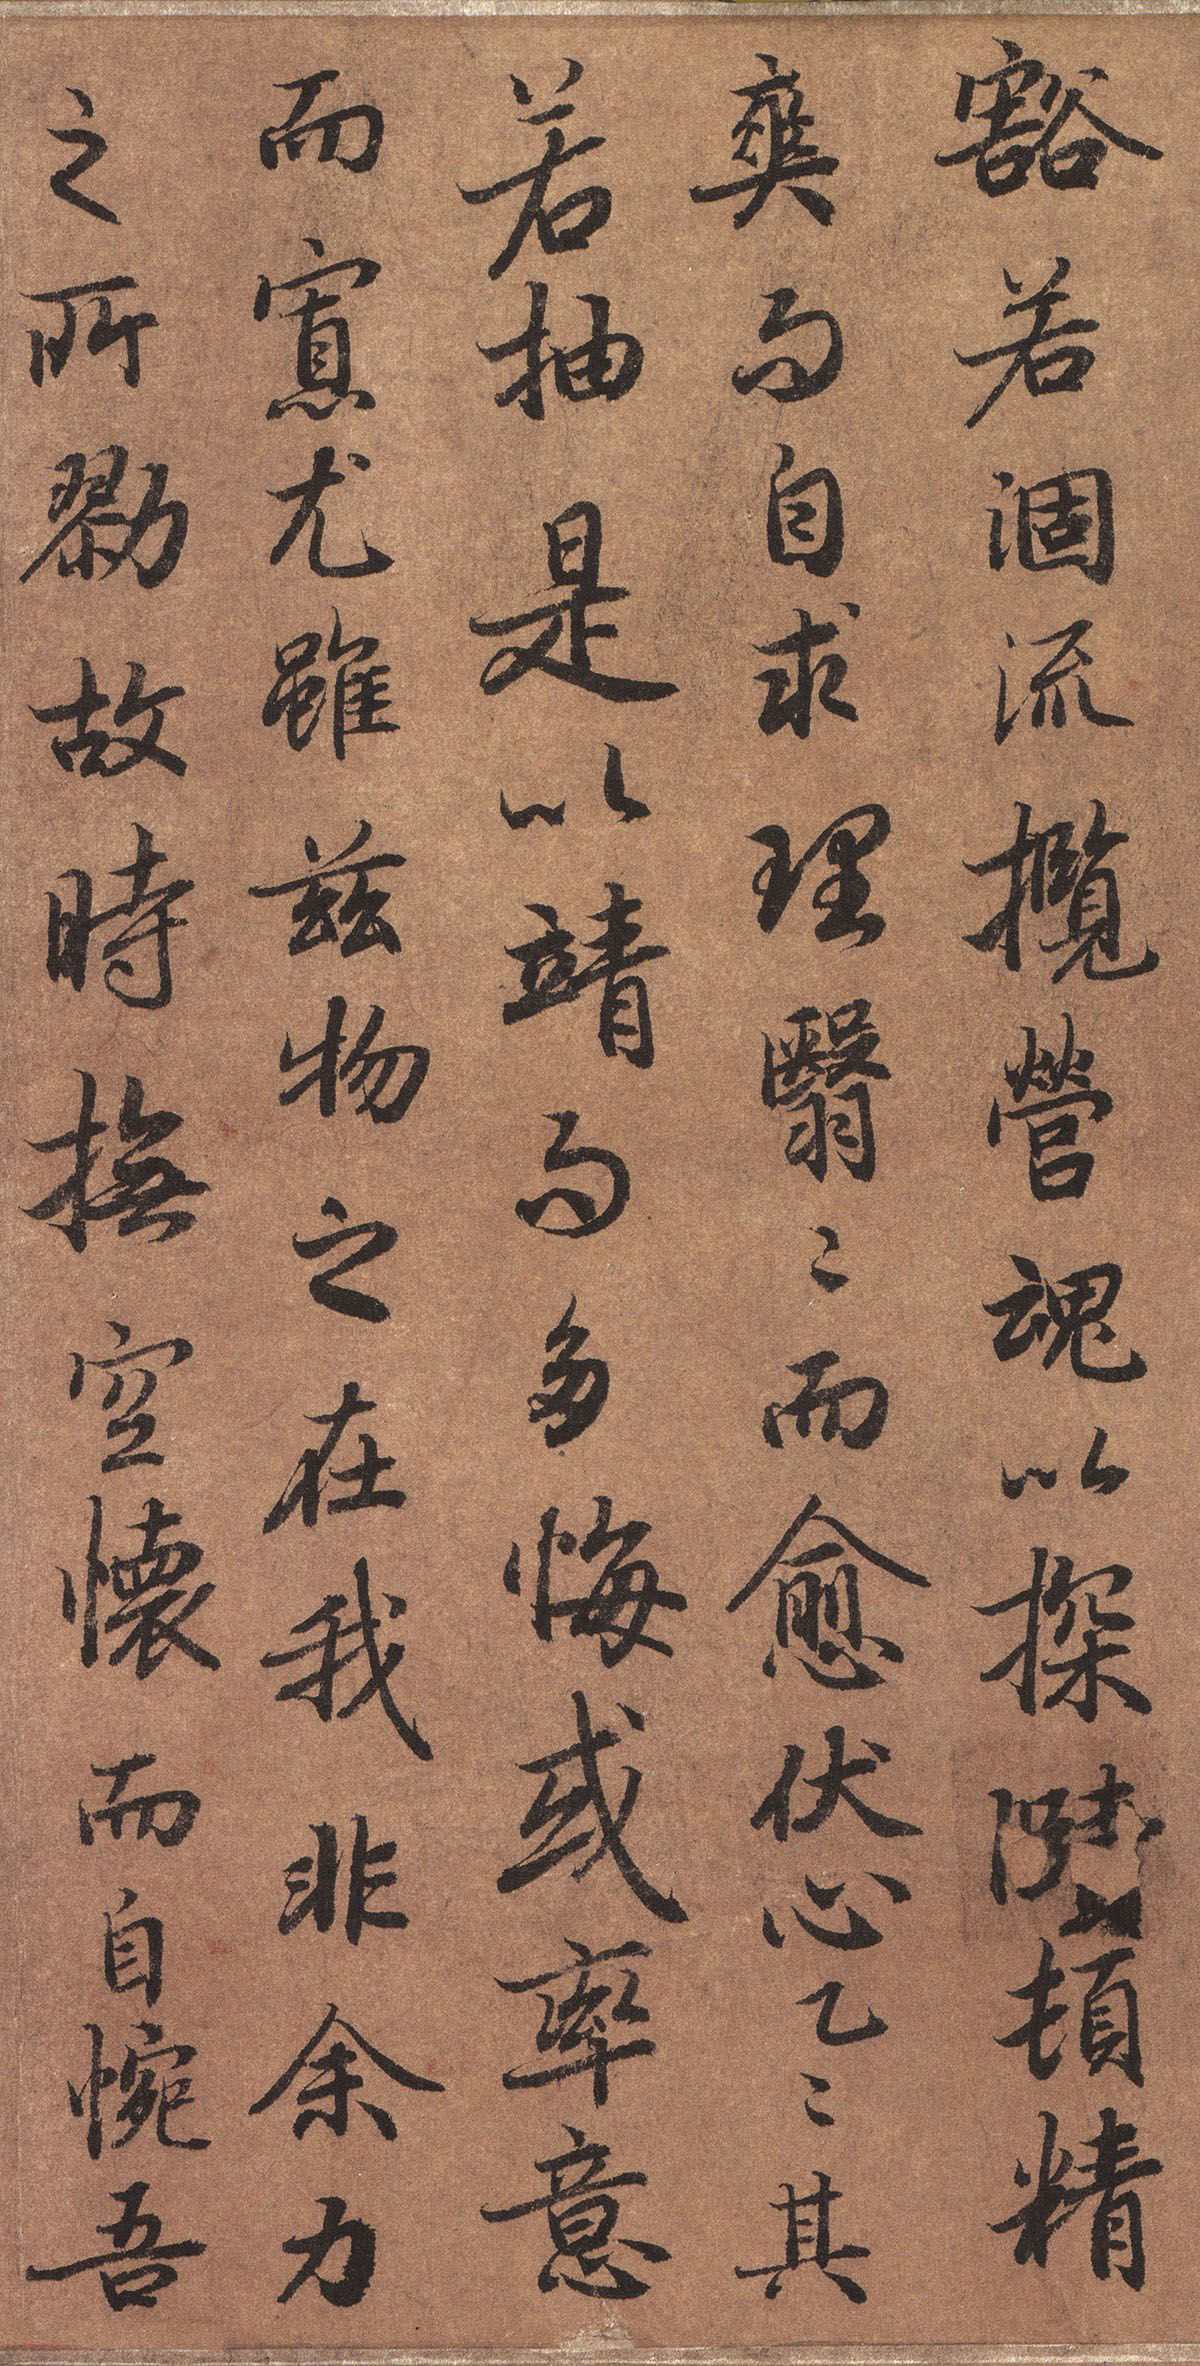 豁若涸流攬營魂以探賾頓精
爽而自求理翳〻而愈伏心乙〻其
若抽是以竭而多悔或率意
而寡尤雖兹物之在我非余力
之所勠故時撫空懷而自惋吾